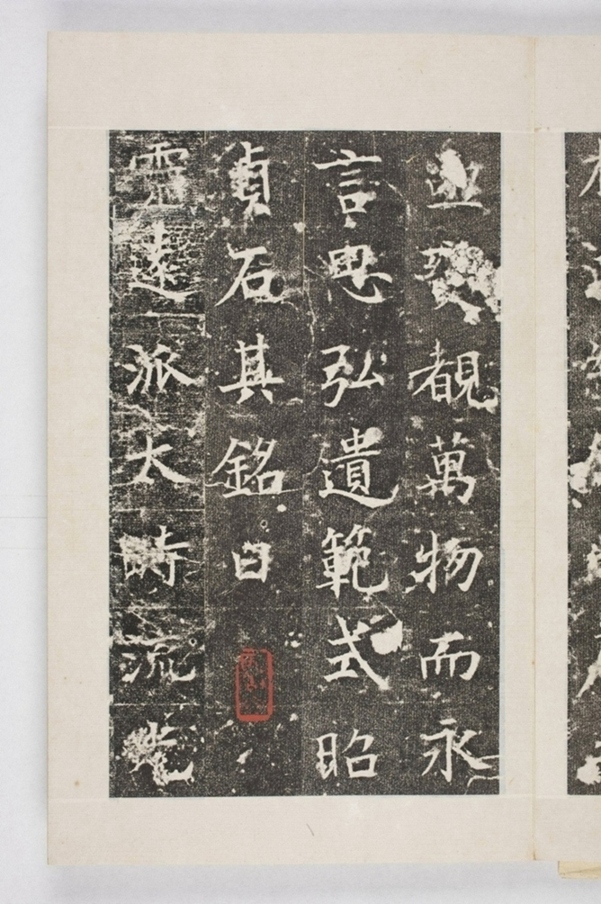 覩萬物而永
言思弘遺範式昭
貞石其銘曰
靈遠派大流光